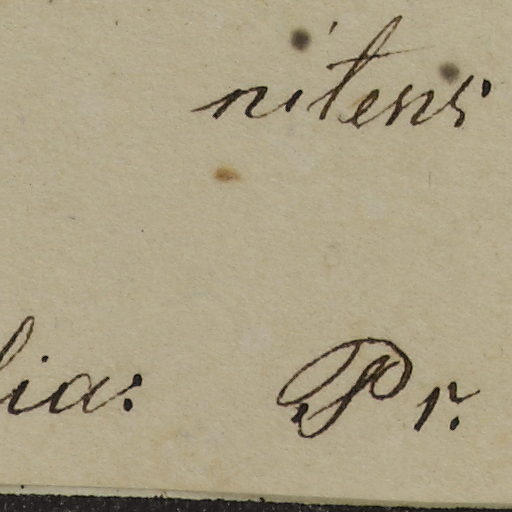 nitens
lia: Pr.